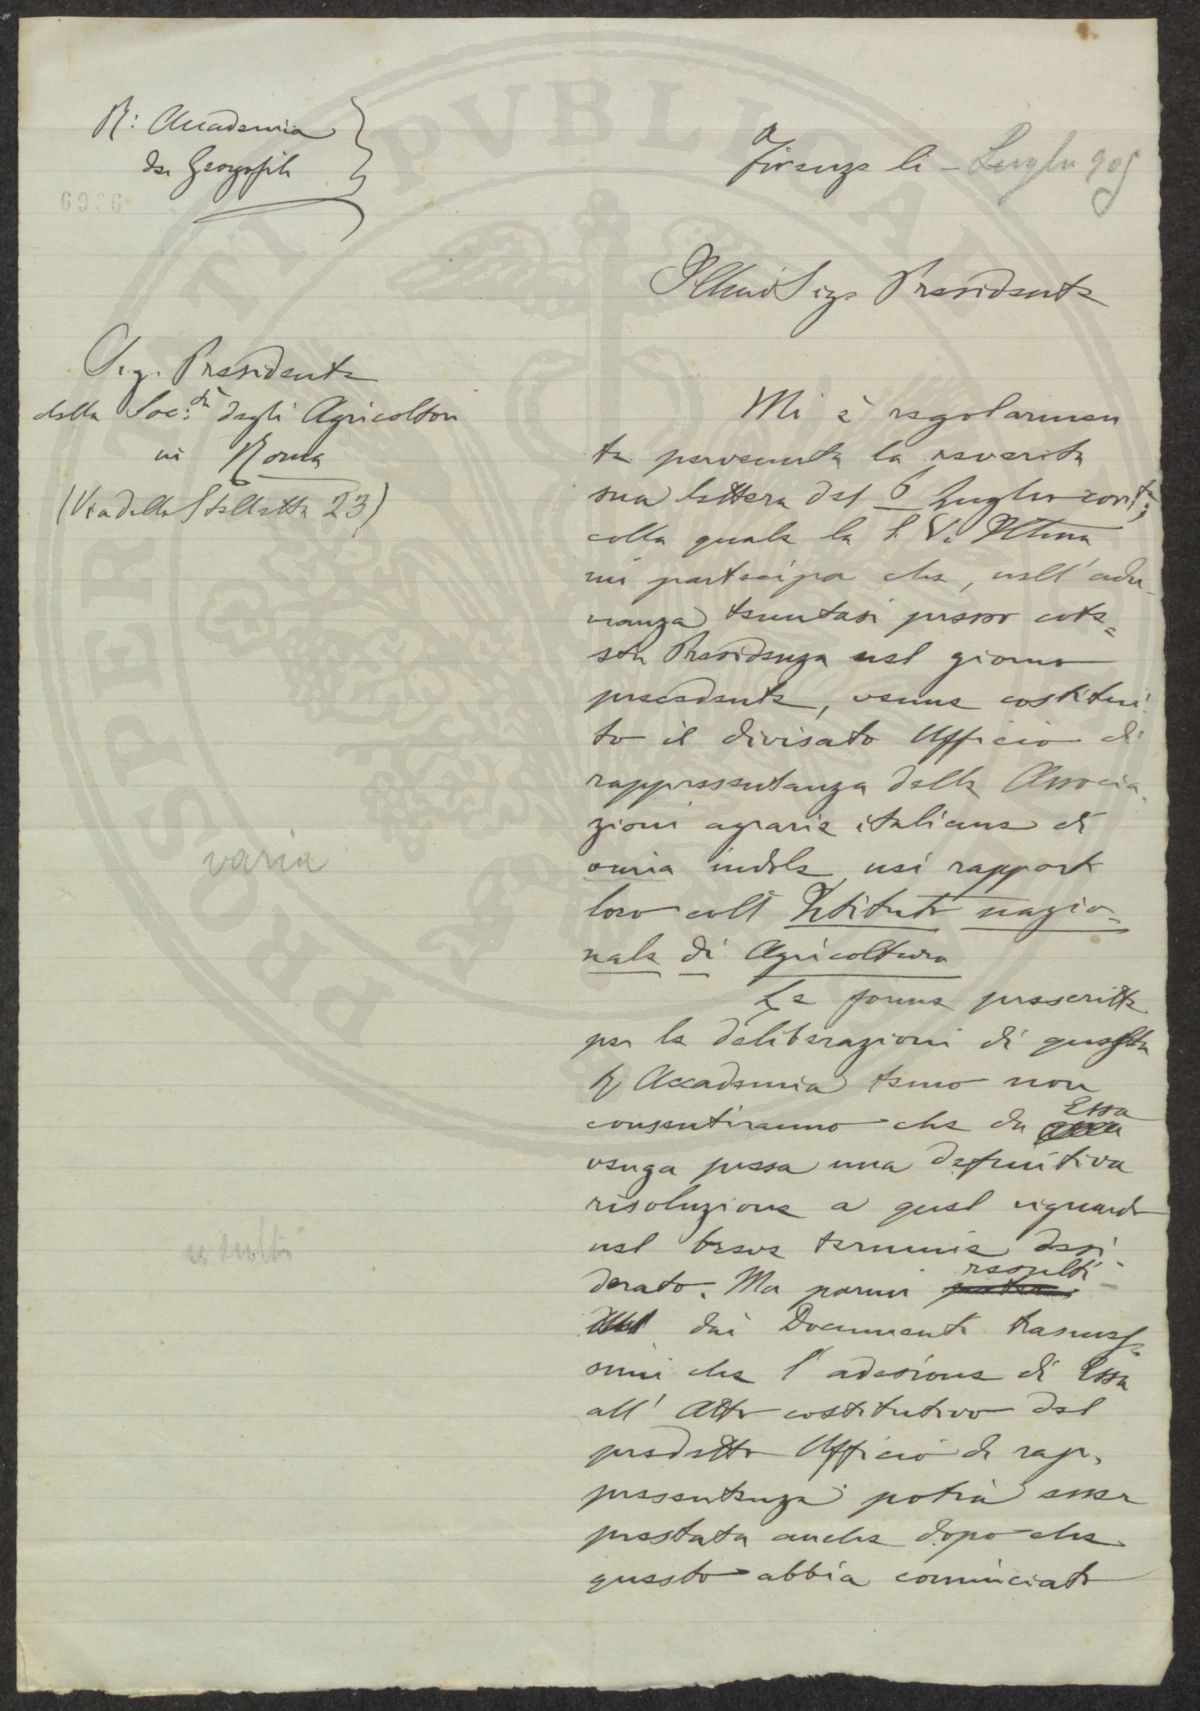 R: Accademia
dei Georgofili
6966
Firenze li – Luglio 905
Illmo Sigr Presidente
Sig. Presidente
della Soc:tà degli Agricoltori
in Roma
(Via della Stelletta 23)
Mi è regolarmen
te pervenuta la reverita
sua lettera del 6 Luglio corrte,
colla quale la S. V. Illma
mi partecipa che, nell'adu-
nanza tenutasi presso cote=
sta Presidenza nel giorno
precedente, venne costitui-
to il divisato Ufficio di
rappresentanza delle Associa-
zioni agrarie italiane di
ogni indole nei rapporti
loro coll' Istituto nazio-
nale di Agricoltura
Le forme prescritte
per le deliberazioni di questa
R. Accademia temo non
consentiranno che da Essa
venga presa una definitiva
risoluzione a quel riguardo
nel breve termine desi
derato. Ma parmi resulti
dai Documenti trasmes-
simi che l'adesione di Essa
all' Atto costitutivo del
predetto Ufficio di rap-
presentanza potrà esser
prestata anche dopo che
questo abbia cominciato
varia